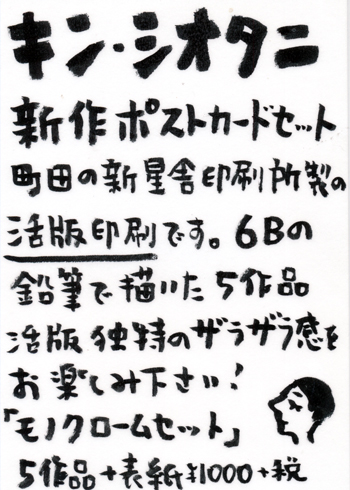 キン・シオタニ
新作ポストカードセット
町田の新星舎印刷所製の
活版印刷です。6Bの
鉛筆で描いた5作品
活版独特のザラザラ感を
お楽しみ下さい!
「モノクロームセット」
5作品+表紙¥1000+税